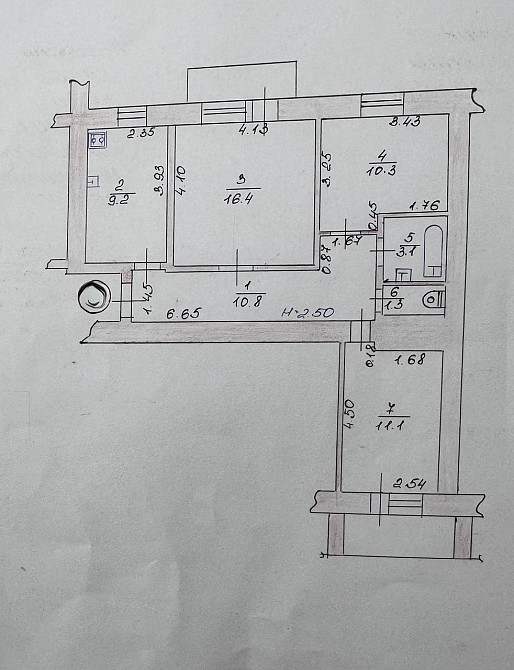 2.35
4.13
3.43
2
9.2
3.93
4.10
3
16.4
3.25
4
10.3
0.45
1.76
1.67
5
3.1
0.87
1
10.8
1.45
6.65
H=2.50
6
1.3
0.18
1.68
4.50
7
11.1
2.54